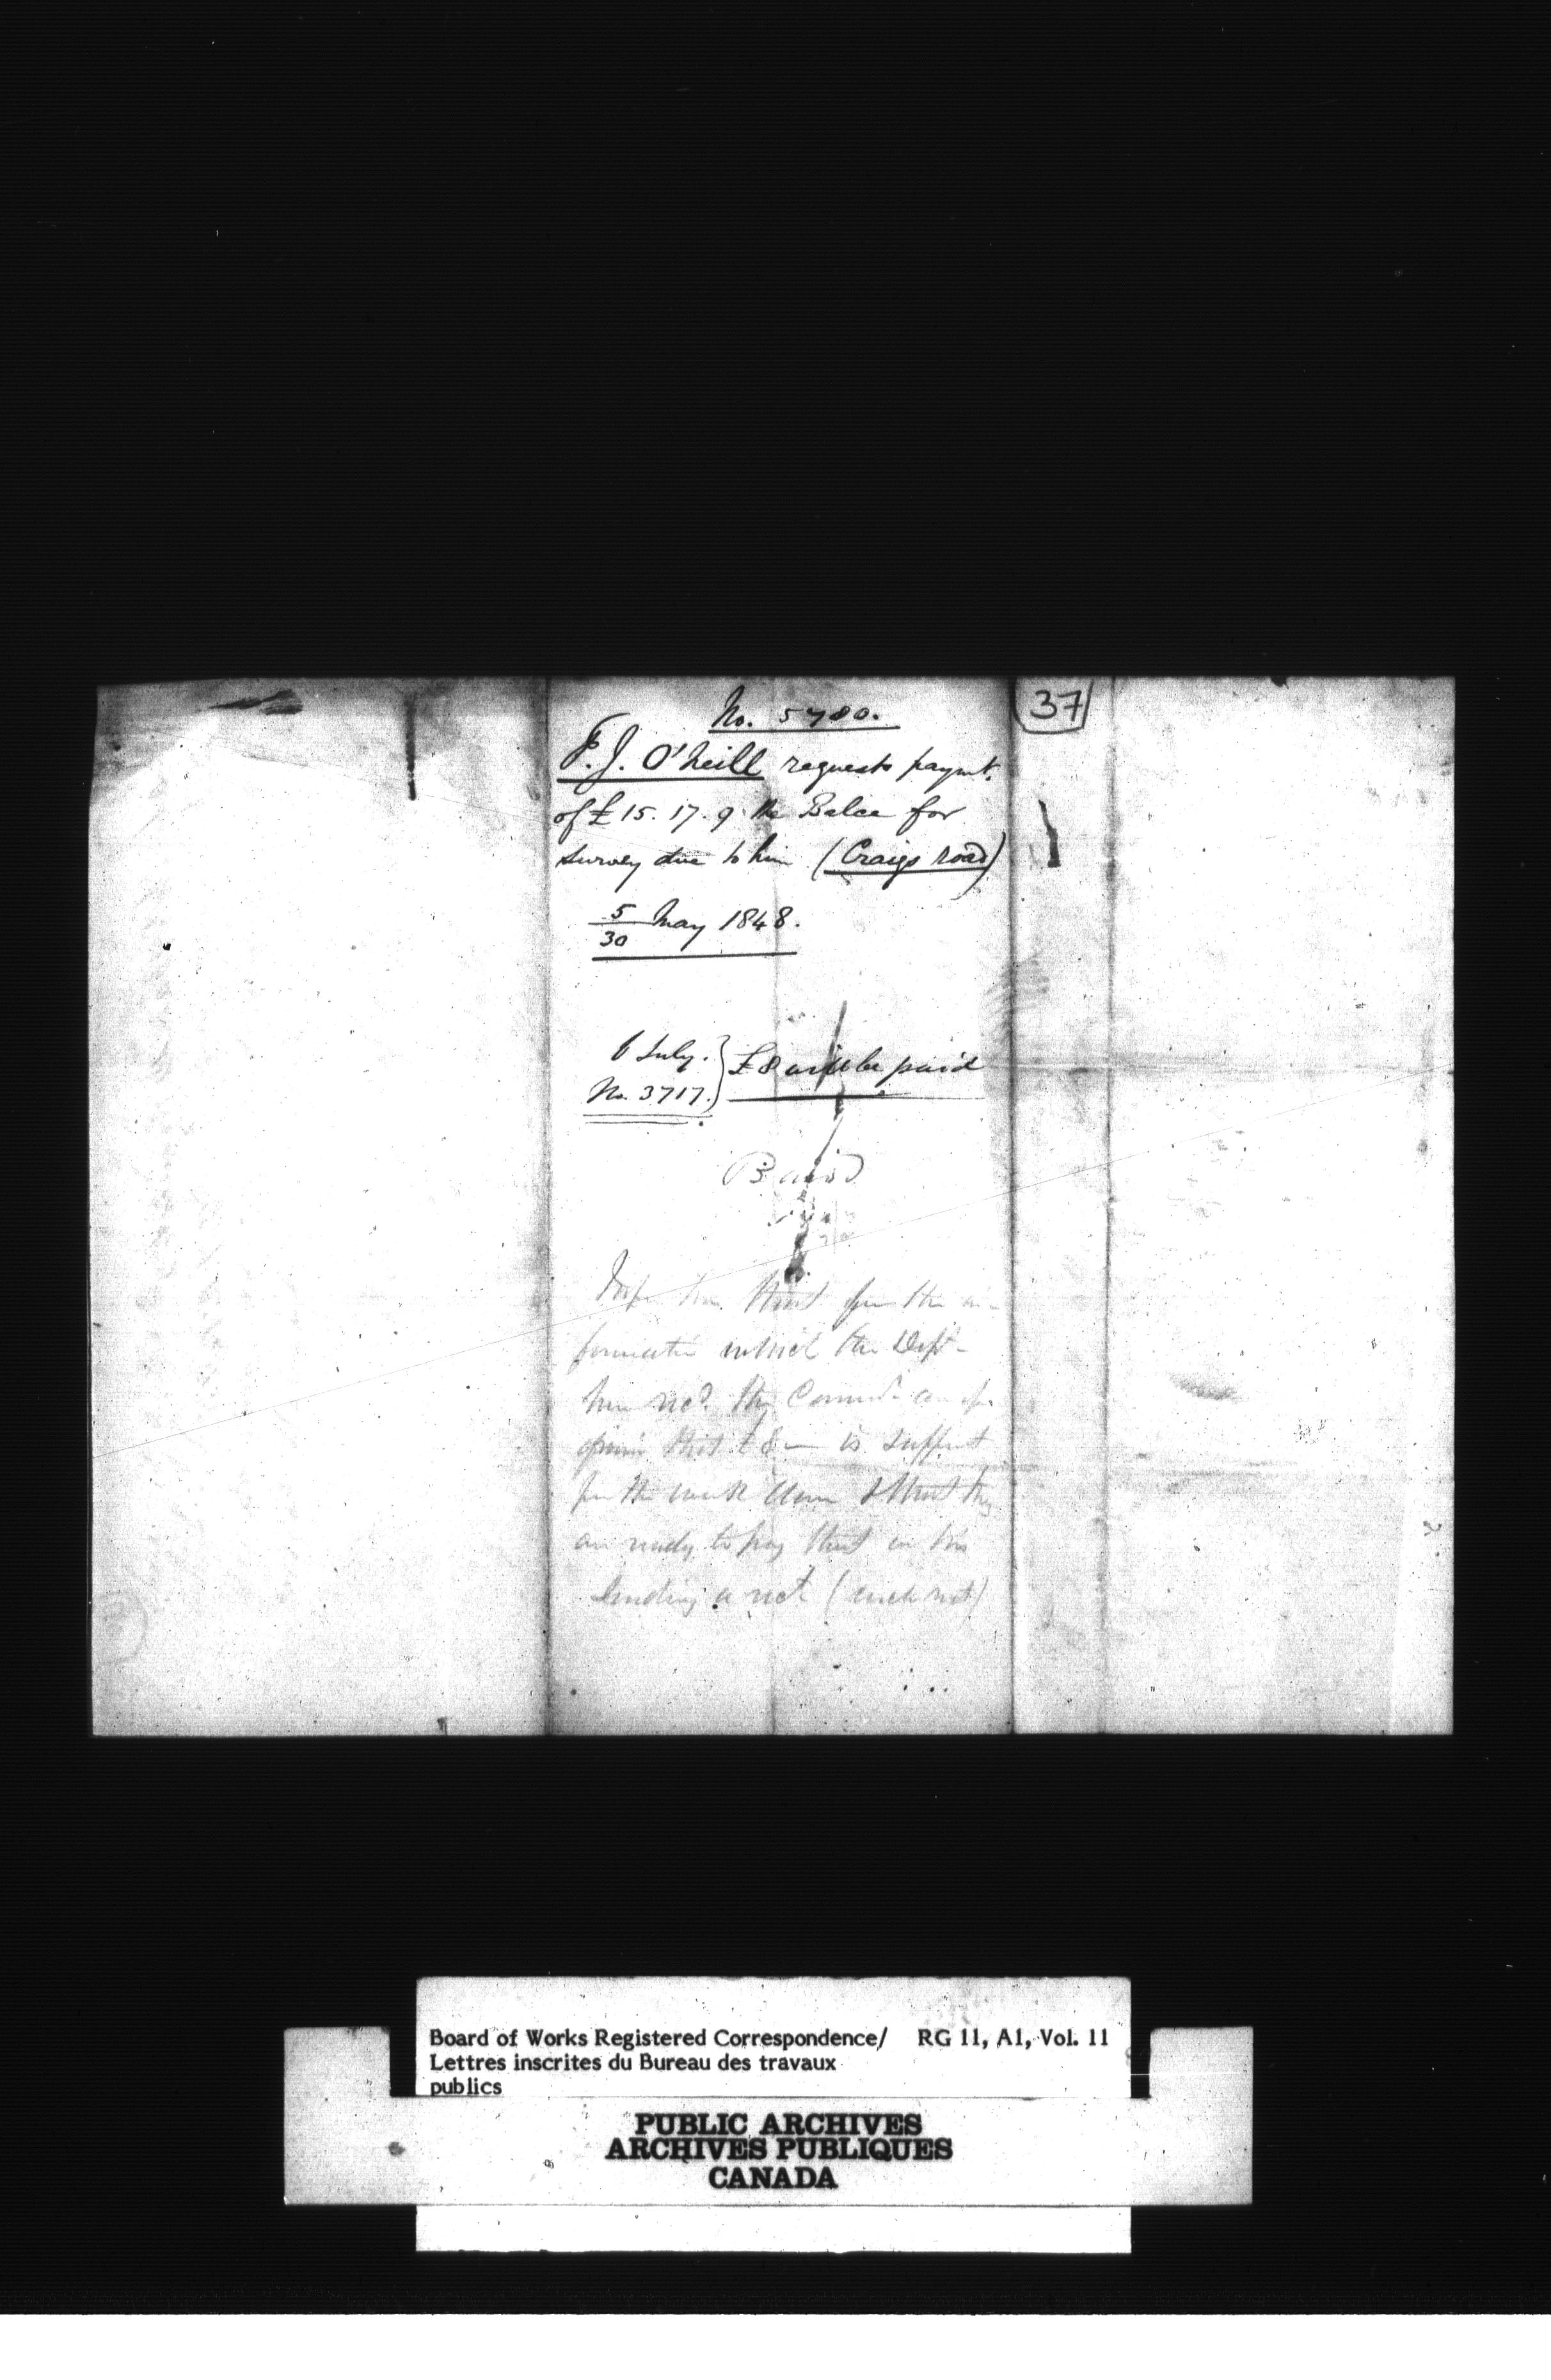 No. 5780.
37
P. J. O'Neill requests paymt.
of £15. 17. 9 the Balce for
survey due to him (Craigs road)
5/30 May 1848.
6 July.
No. 3717. } £8 will be paid
that from the in-
formation which the Dept.
have recd. the Commrs. are of
opinion that £8 — is suffict
for the work done & that they
are ready to pay that on his
sending a rect
Board of Works Registered Correspondence/ RG 11, A1, Vol. 11
Lettres inscrites du Bureau des travaux
publics
PUBLIC ARCHIVES
ARCHIVES PUBLIQUES
CANADA